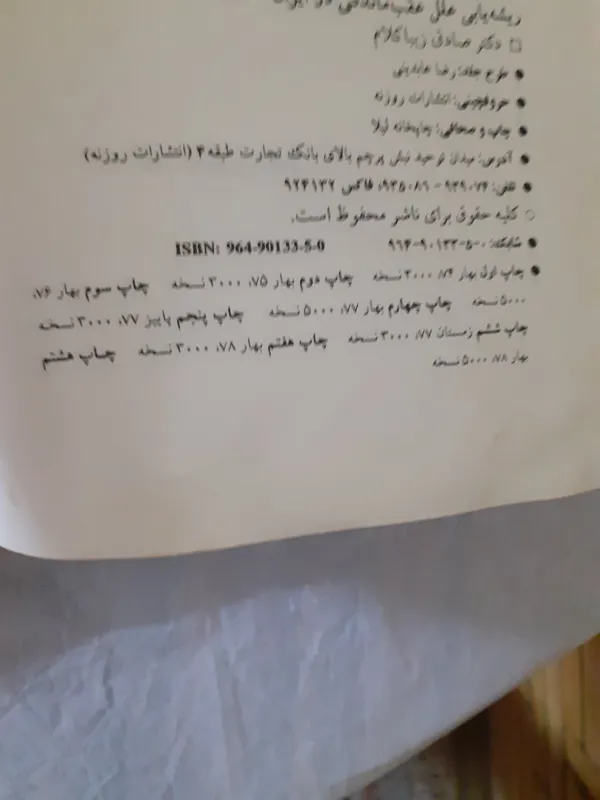 ریشه‌یابی علل عقب‌ماندگی در ایران
□ دکتر صادق زیباکلام
● طرح جلد: رضا عابدینی
● حروفچینی: انتشارات روزنه
● چاپ و صحافی: چاپخانه لیلا
● آدرس: میدان توحید نبش پرچم بالای بانک تجارت طبقه ۴ (انتشارات روزنه)
● تلفن: ۹۳۹۰۷۴ - ۹۳۵۰۸۶، فاکس ۹۲۴۱۳۲
○ کلیه حقوق برای ناشر محفوظ است.
● شابک: ۰-۵-۹۰۱۳۳-۹۶۴ ISBN: 964-90133-5-0
● چاپ اول بهار ۷۴، ۳۰۰۰ نسخه چاپ دوم بهار ۷۵، ۳۰۰۰ نسخه چاپ سوم بهار ۷۶،
۵۰۰۰ نسخه چاپ چهارم بهار ۷۷، ۵۰۰۰ نسخه چاپ پنجم پاییز ۷۷، ۳۰۰۰ نسخه
چاپ ششم زمستان ۷۷، ۳۰۰۰ نسخه چاپ هفتم بهار ۷۸، ۳۰۰۰ نسخه چاپ هشتم
بهار ۷۸، ۵۰۰۰ نسخه